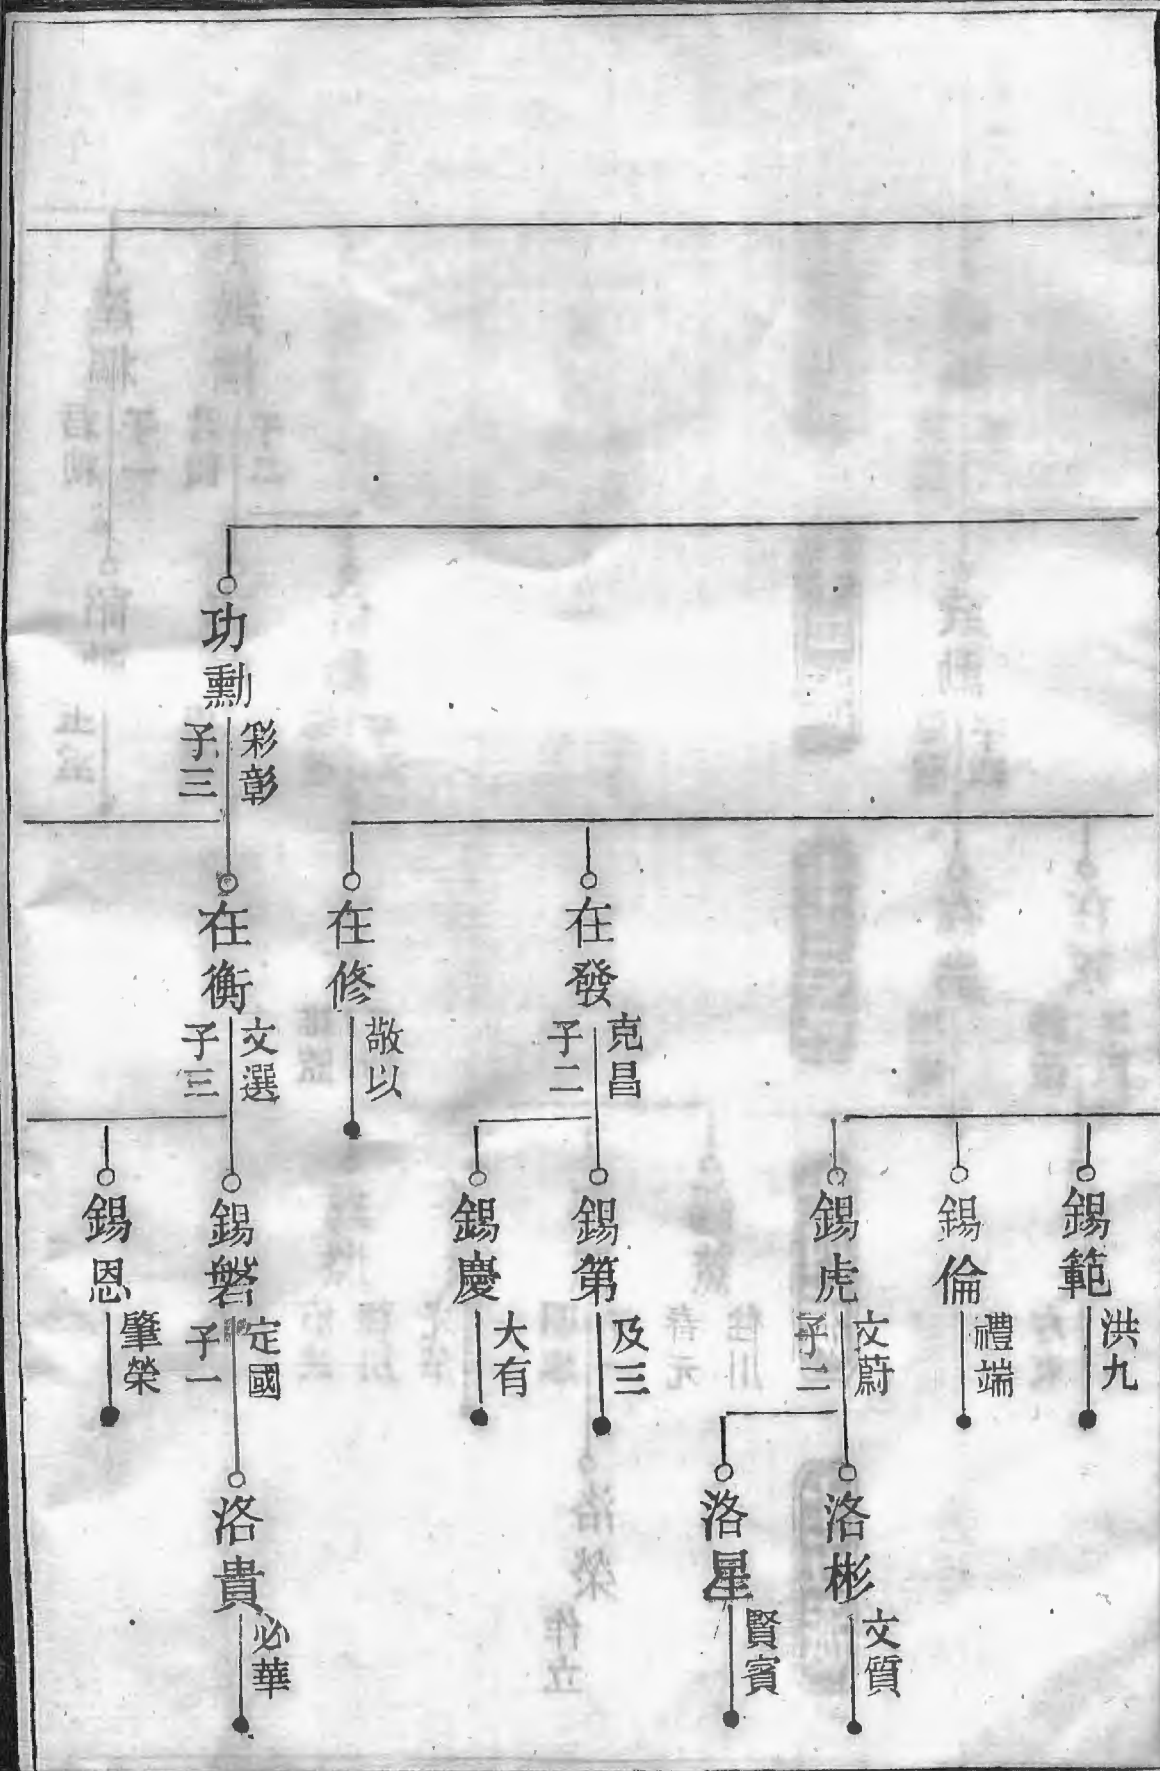 功勳
彩彰
子三
在發
克昌
子二
在修
敬以
在衡
文選
子三
錫範
洪九
錫倫
禮端
錫虎
文蔚
子二
錫第
及三
錫慶
大有
錫磐
定國
子一
錫恩
肇榮
洛彬
文質
洛星
賢賓
洛貴
必華